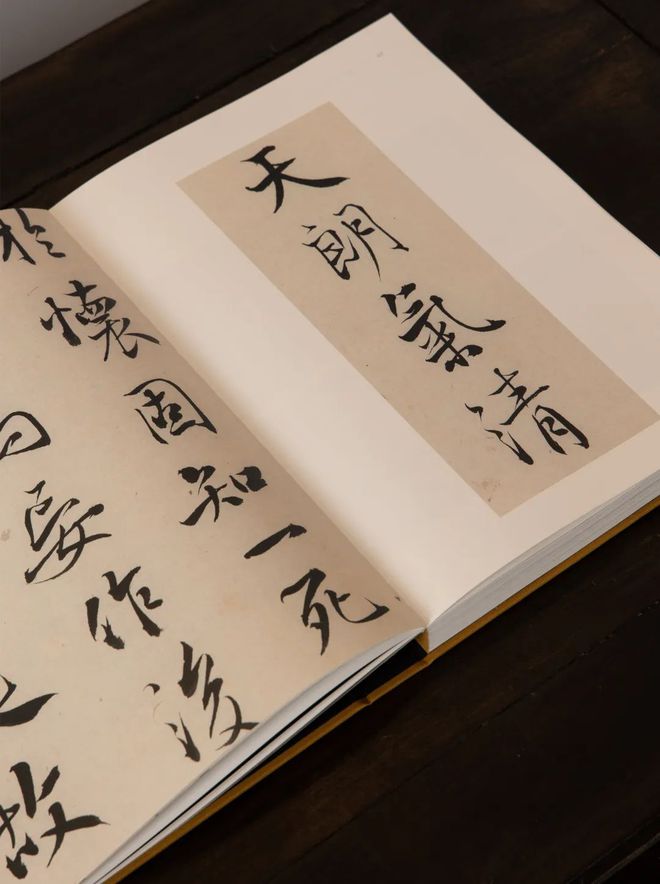 天朗氣清
於懷固知一死
妄作後
故